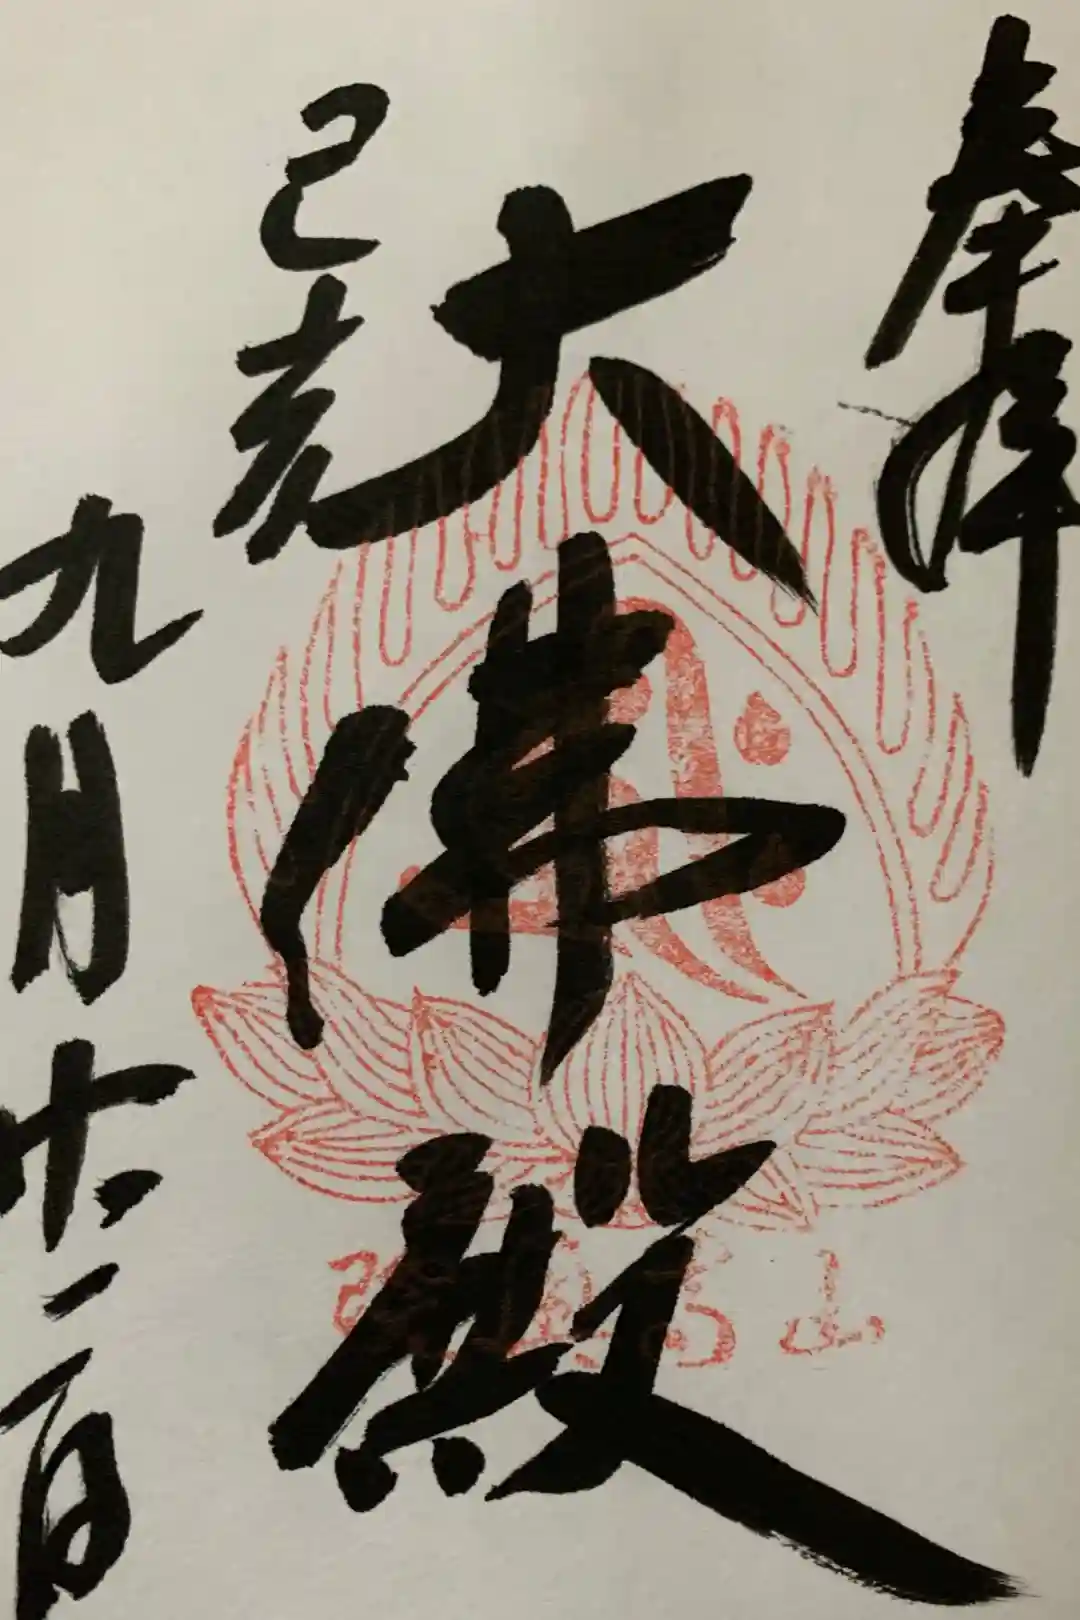 奉拝
大佛殿
己亥
九月十二日